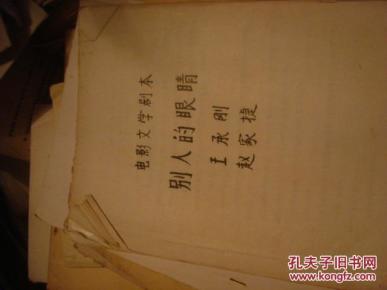 电影文学剧本
别人的眼睛
王承刚
赵家捷
孔夫子旧书网
www.kongfz.com